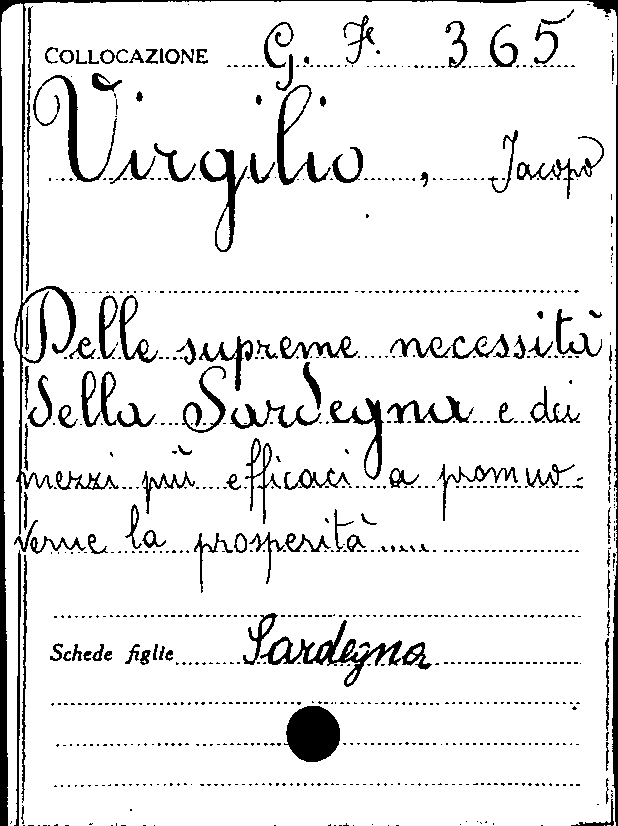 COLLOCAZIONE G. F. 365
Virgilio, Jacopo
Delle supreme necessità
della Sardegna e dei
mezzi più efficaci a promuo-
verne la prosperità.....
Schede figlie Sardegna